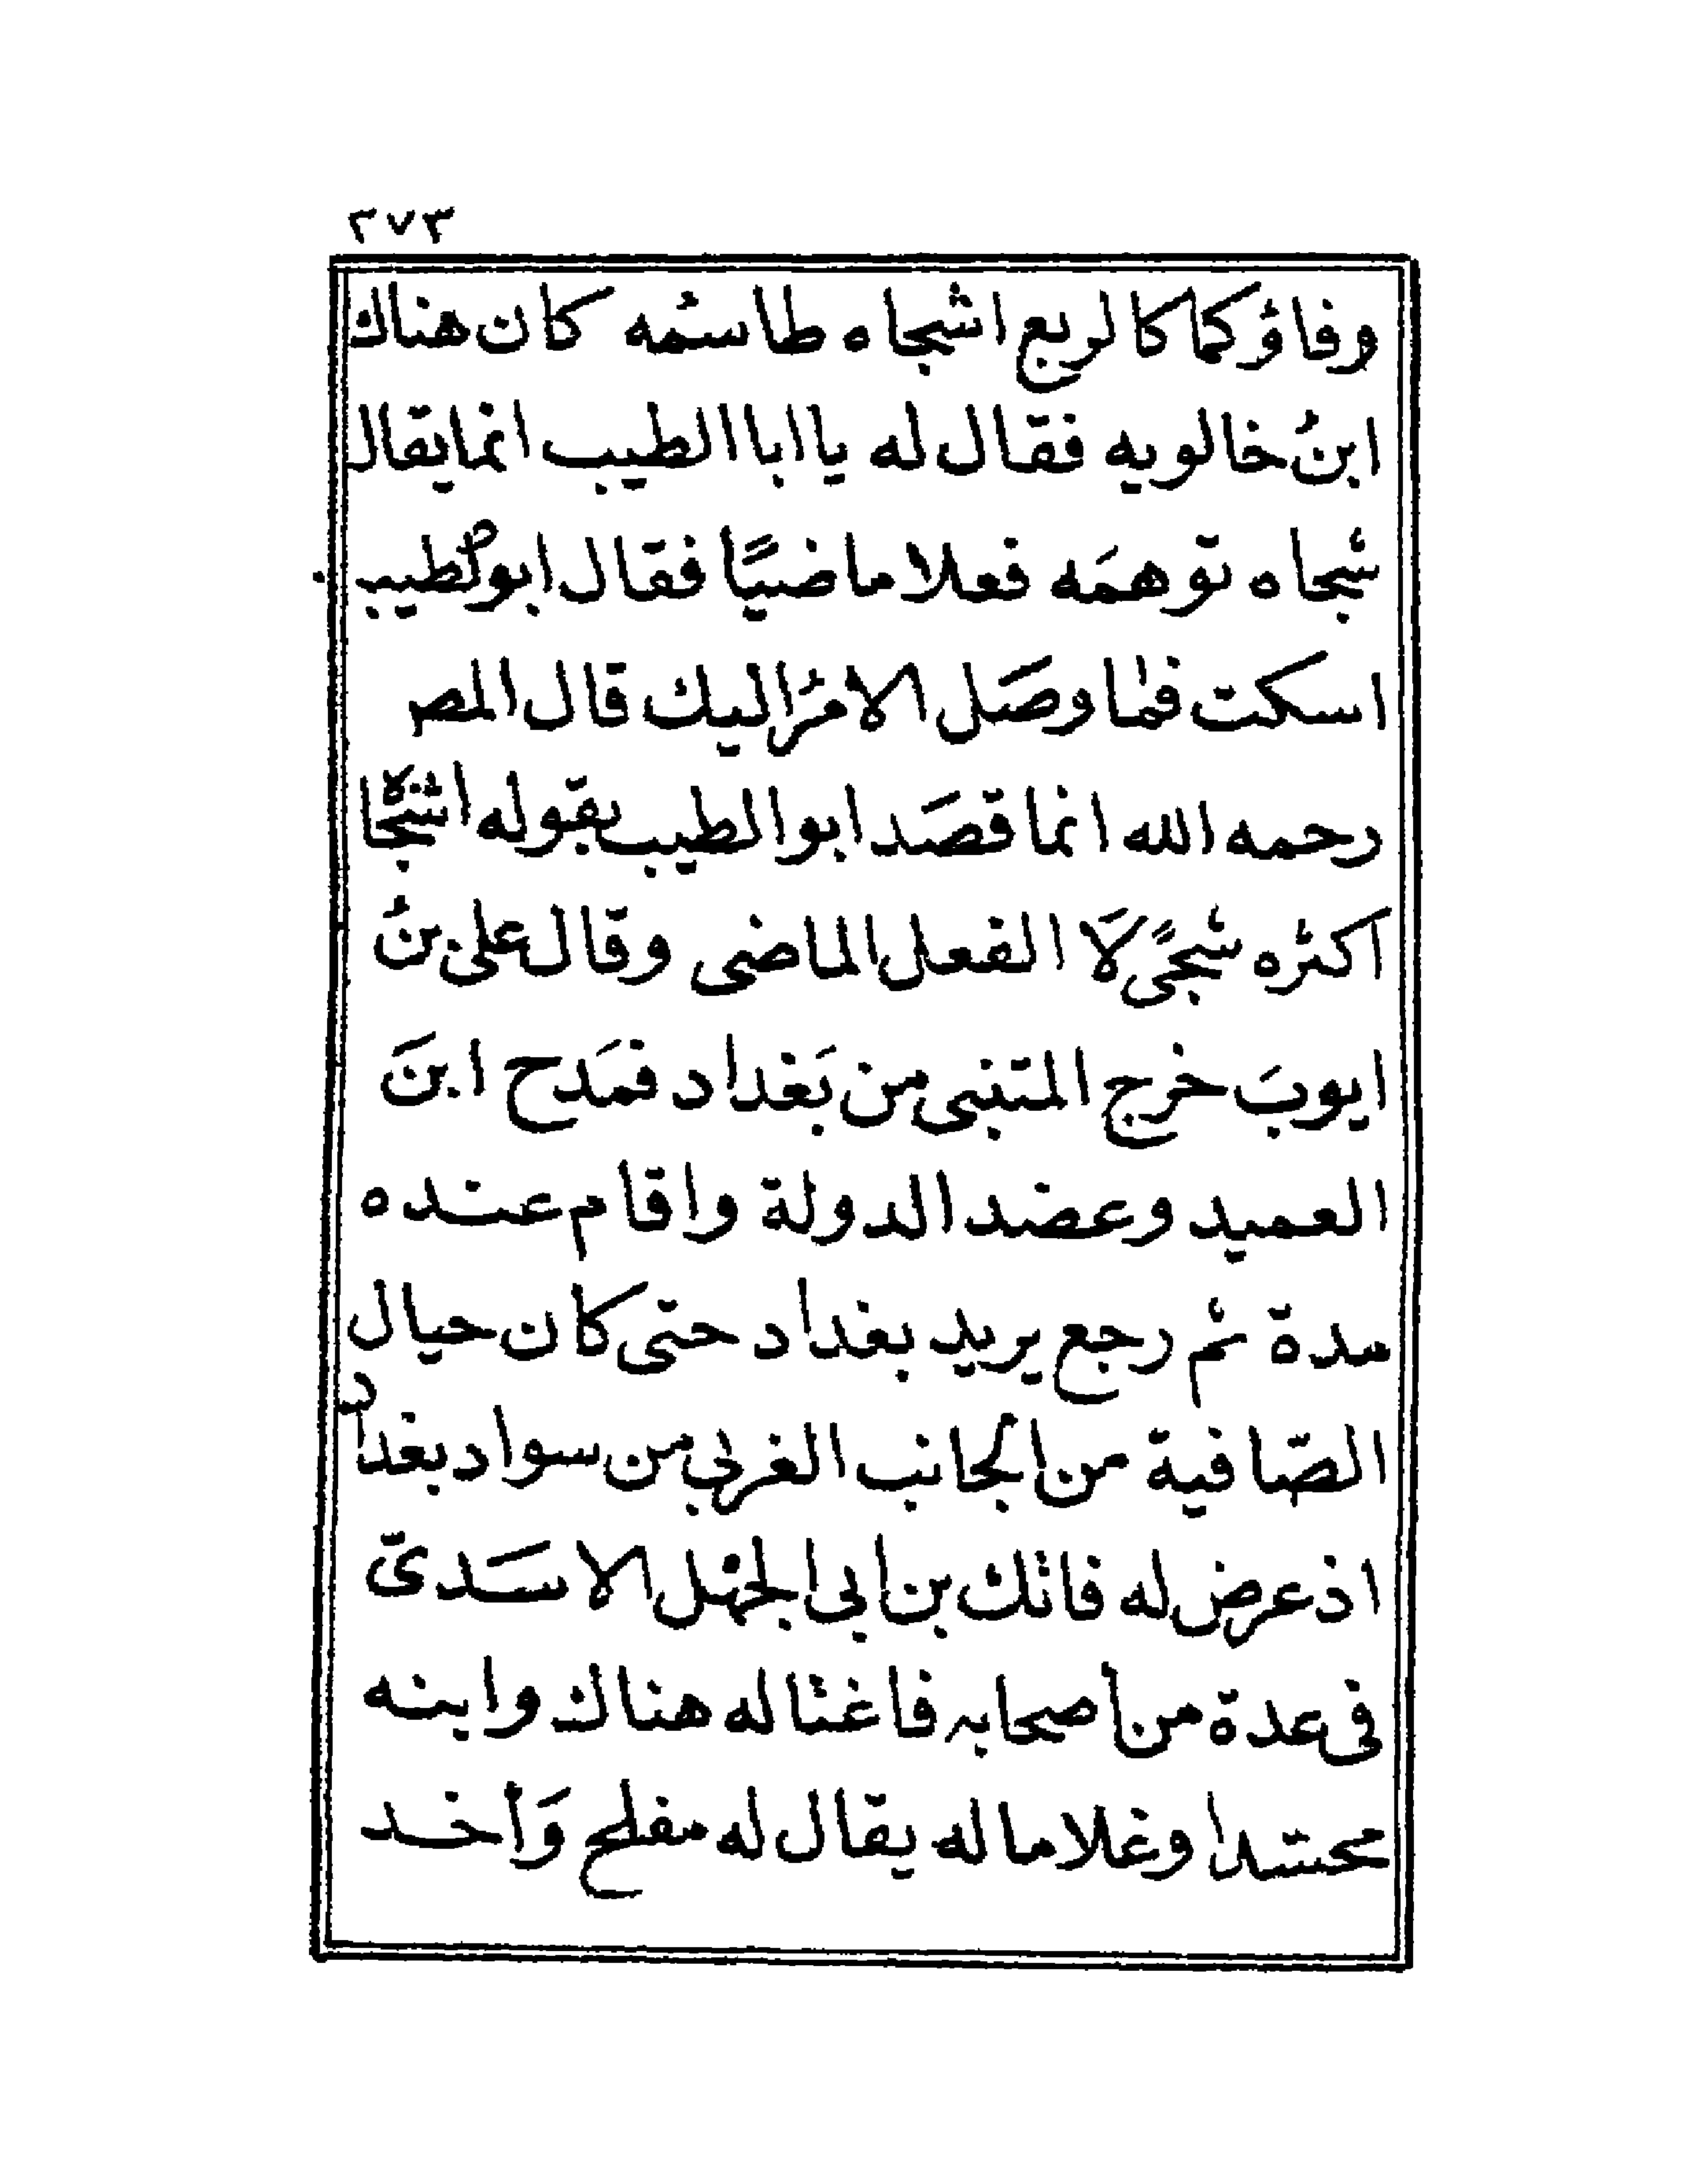 ٢٧٣
وفاؤكما كالربع اشجاه طاسمُه كان هناك
ابنُ خالويه فقال له يا ابا الطيب انما يقال
شجاه توهمَه فعلا ماضيًا فقال ابو الطيب
اسكت فما وصَل الامرُ اليك قال المص
رحمه الله انما قصَد ابو الطيب بقوله اشجاه
اكثره شجًى لَا الفعل الماضى وقال على بنُ
ايوبَ خرج المتنبى من بَغداد فمَدح ابنَ
العميد وعضد الدولة واقام عنده
مدة ثم رجع يريد بغداد حتى كان حيال
الصّافية من الجانب الغربي من سواد بغداد
اذ عرض له فاتك بن ابي الجهل الاسَدىّ
فى عدة من أصحابه فاغتاله هناك وابنه
محسّدا وغلاما له يقال له مفلح وَأخد